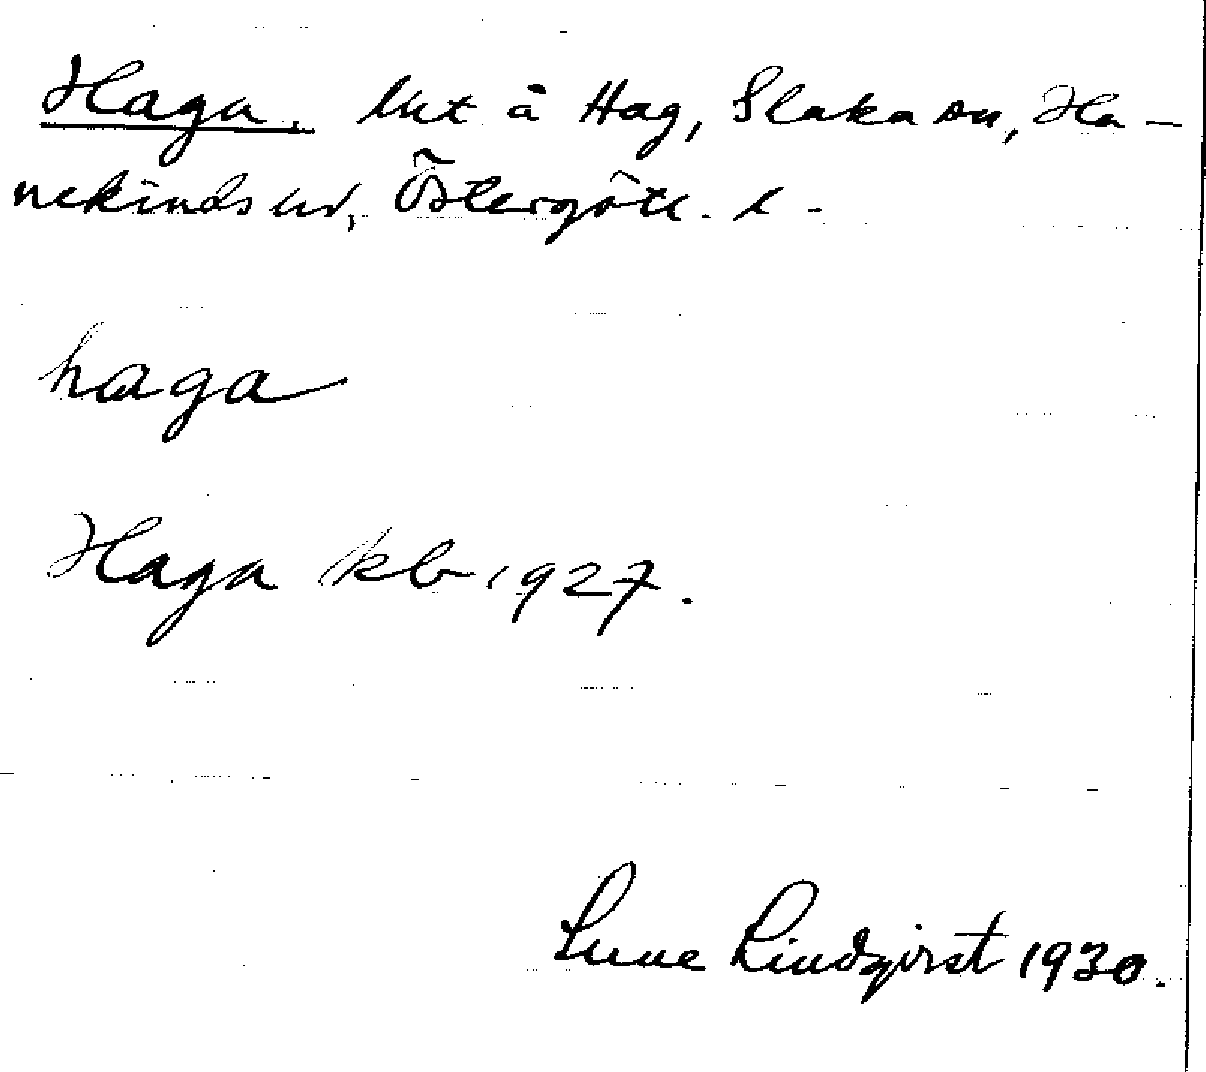 Haga. Utt å Hag, Slaka sn, Ha-
nekinds hd, Östergötl. l.
haga
Haga kb 1927.
Sune Lindqvist 1930.